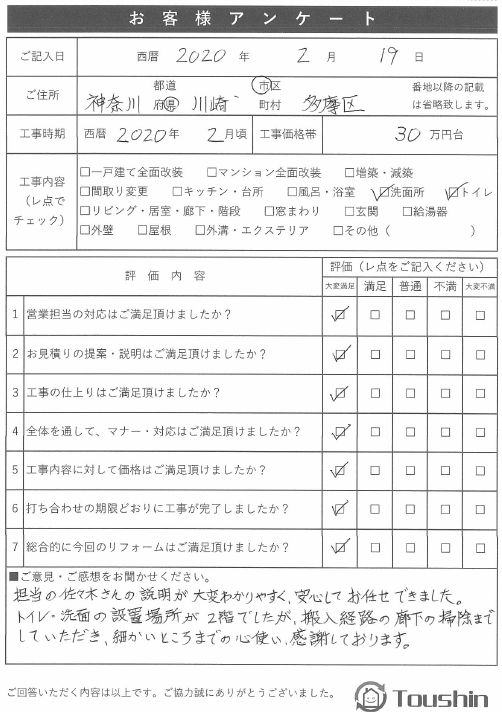 お客様アンケート
ご記入日 西暦 2020 年 2 月 19 日
ご住所 神奈川 都道府県 川崎 市区町村 多摩区 番地以降の記載は省略致します。
工事時期 西暦 2020 年 2 月頃 工事価格帯 30 万円台
工事内容（レ点でチェック）
□一戸建て全面改装 □マンション全面改装 □増築・減築
□間取り変更 □キッチン・台所 □風呂・浴室 ☑洗面所 ☑トイレ
□リビング・居室・廊下・階段 □窓まわり □玄関 □給湯器
□外壁 □屋根 □外溝・エクステリア □その他（ ）
評価内容 評価（レ点をご記入ください）
大変満足 満足 普通 不満 大変不満
1 営業担当の対応はご満足頂けましたか？ ☑ □ □ □ □
2 お見積りの提案・説明はご満足頂けましたか？ ☑ □ □ □ □
3 工事の仕上りはご満足頂けましたか？ ☑ □ □ □ □
4 全体を通して、マナー・対応はご満足頂けましたか？ ☑ □ □ □ □
5 工事内容に対して価格はご満足頂けましたか？ ☑ □ □ □ □
6 打ち合わせの期限どおりに工事が完了しましたか？ ☑ □ □ □ □
7 総合的に今回のリフォームはご満足頂けましたか？ ☑ □ □ □ □
■ご意見・ご感想をお聞かせください。
担当の佐々木さんの説明が大変わかりやすく、安心してお任せできました。
トイレ・洗面の設置場所が2階でしたが、搬入経路の廊下の掃除まで
していただき、細かいところまでの心使い、感謝しております。
ご回答いただく内容は以上です。ご協力誠にありがとうございました。
Toushin